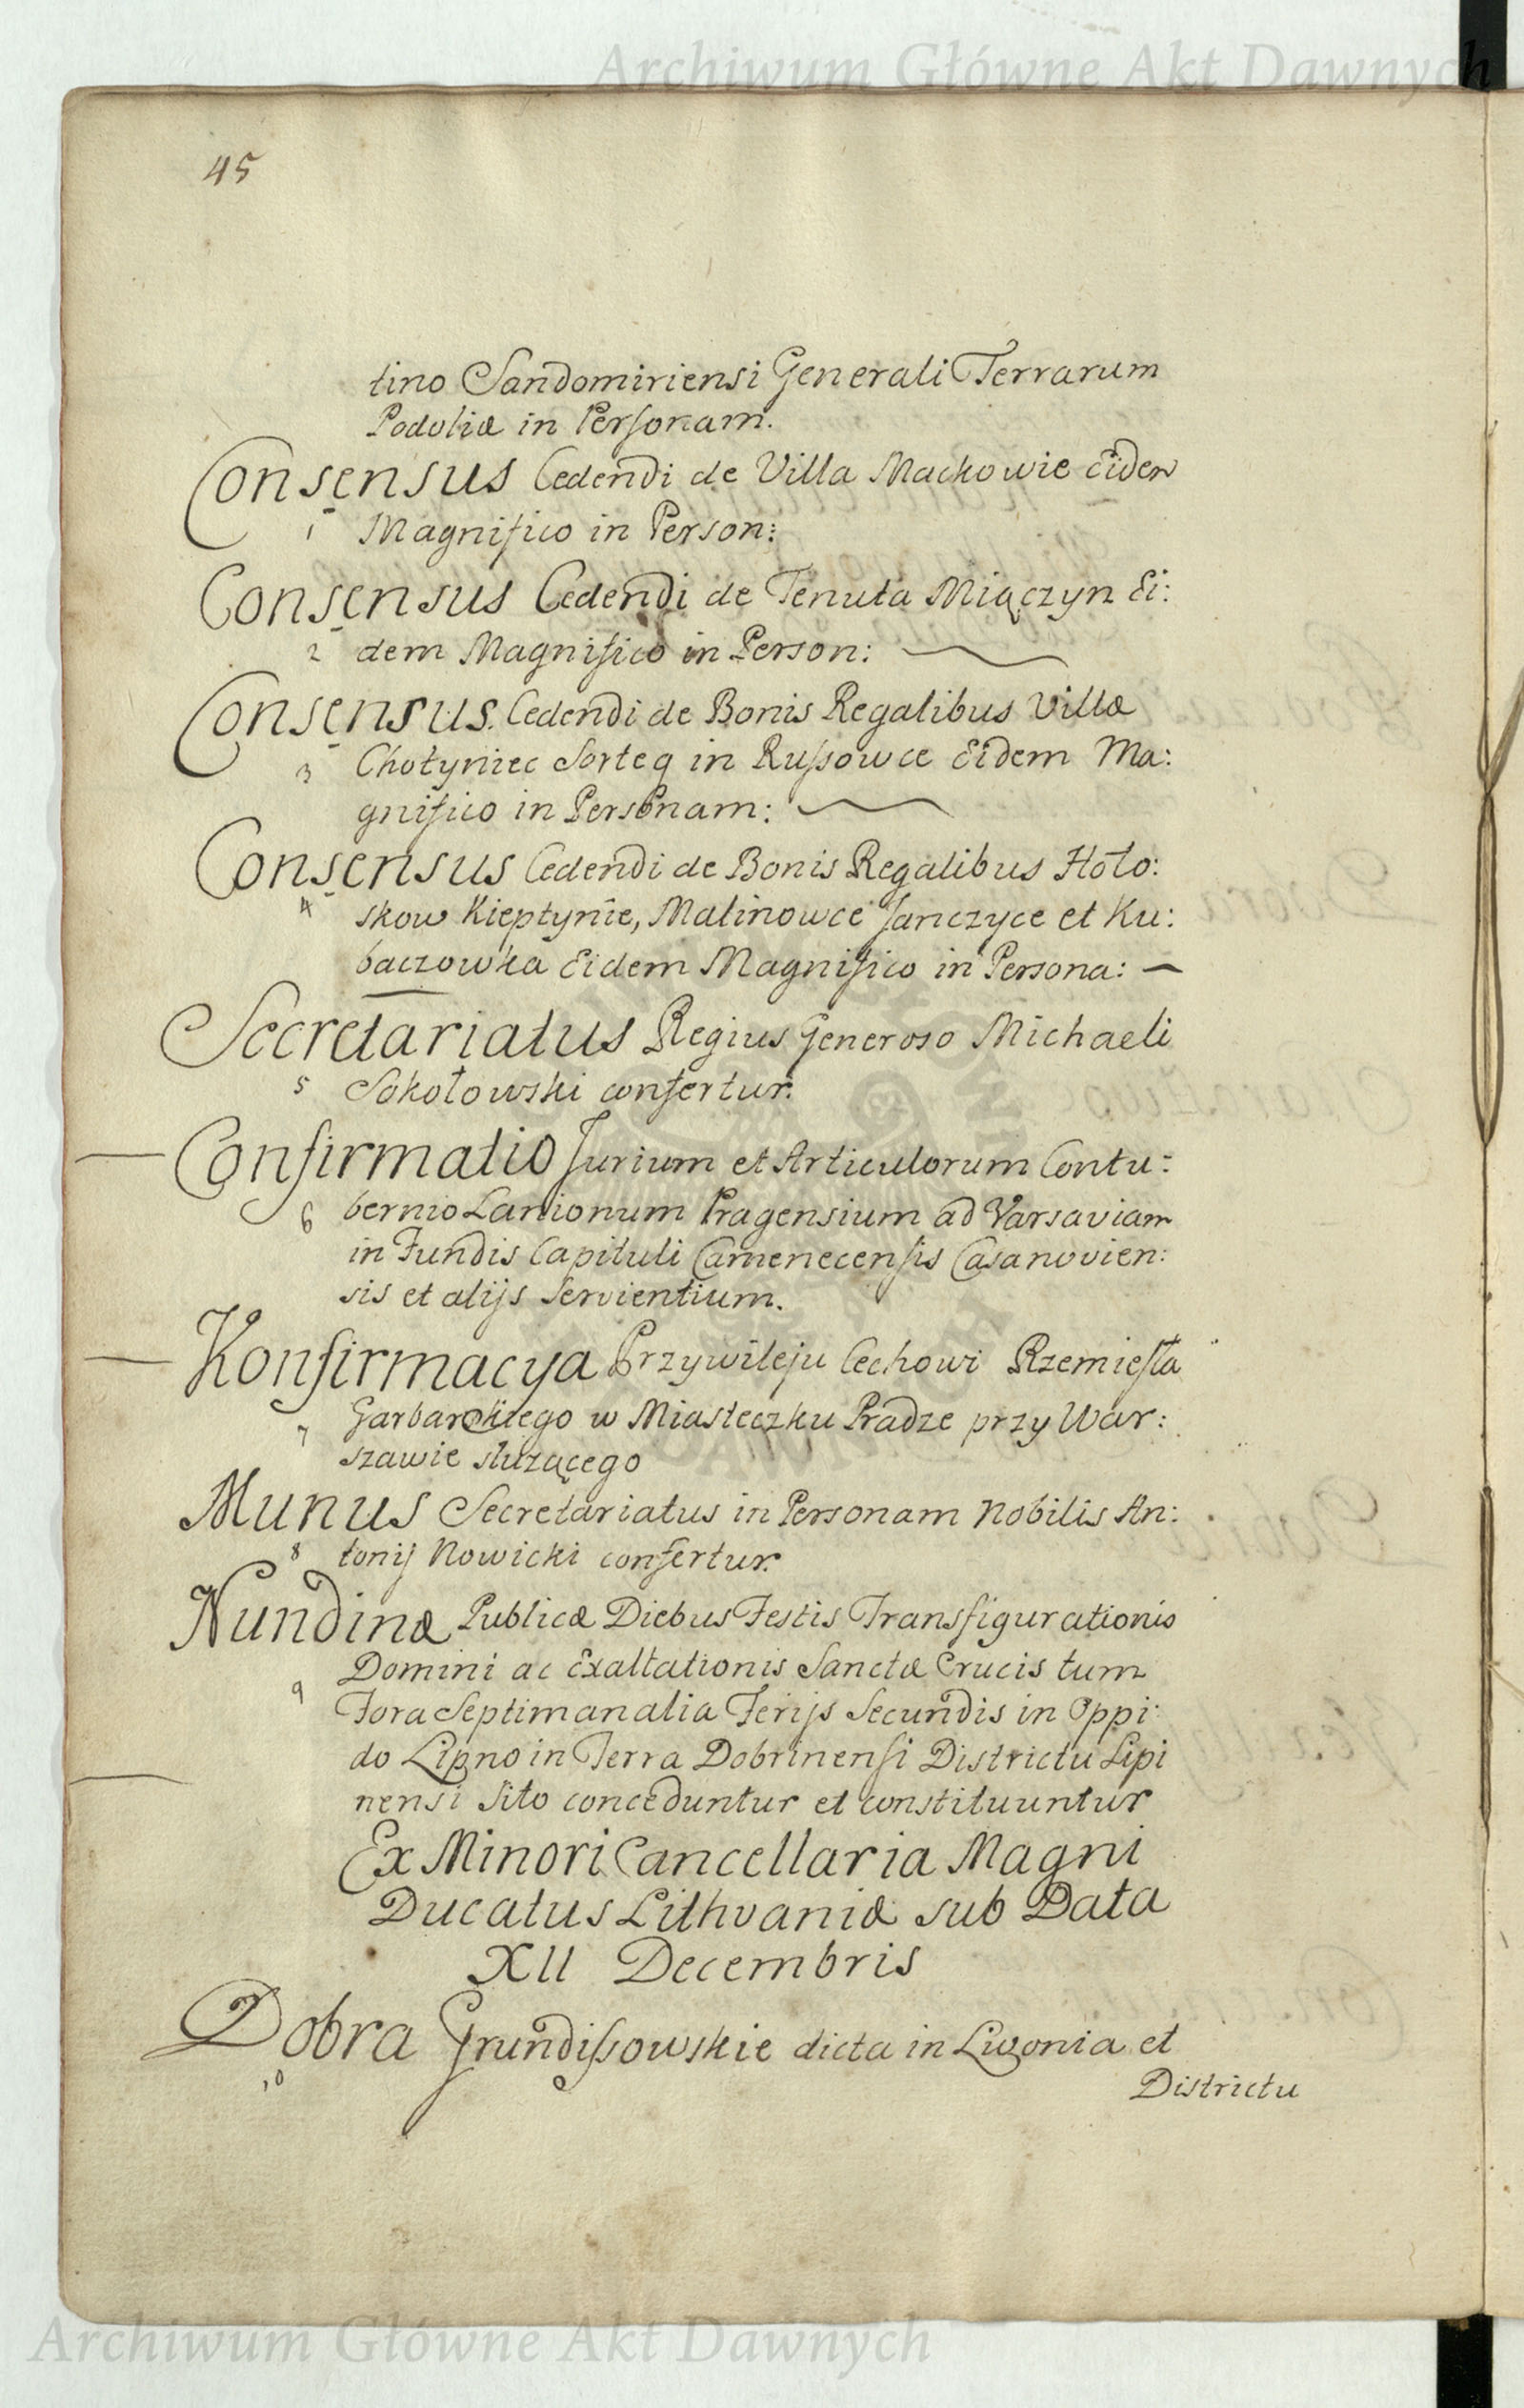 Archiwum Główne Akt Dawnych
45
tino Sandomiriensi Generali Terrarum
Podoliæ in Personam.
Consensus Cedendi de Villa Mackowie Eidem
1 Magnifico in Person:
Consensus Cedendi de Tenuta Miączyn Ei:
2 dem Magnifico in Person:
Consensus Cedendi de Bonis Regalibus Villæ
3 Chotyniec Sorteq in Russowce Eidem Ma:
gnifico in Personam:
Consensus Cedendi de Bonis Regalibus Hoło:
4 skow Kieptynie, Malinowce Janczyce et Ku:
baczowka Eidem Magnifico in Persona:
Secretariatus Regius Generoso Michaeli
5 Sokołowski confertur.
Confirmatio Jurium et Articulorum Contu:
6 bernio Lanionum Pragensium ad Varsaviam
in Fundis Capituli Camenecensis Casanovien:
sis et alijs Servientium.
Konfirmacya Przywileju Cechowi Rzemiesła
7 Garbarskiego w Miasteczku Pradze przy War:
szawie służącego
Munus Secretariatus in Personam Nobilis An:
8 tonij Nowicki confertur.
Nundinæ Publicæ Diebus Festis Transfigurationis
Domini ac Exaltationis Sanctæ Crucis tum
9 Fora Septimanalia Ferijs Secundis in Oppi:
do Lipno in Terra Dobrinensi Districtu Lipi
nensi Sito conceduntur et constituuntur
Ex Minori Cancellaria Magni
Ducatus Lithvaniæ sub Data
XII Decembris
Dobra Grundissowskie dicta in Livonia et
10
Districtu
Archiwum Główne Akt Dawnych